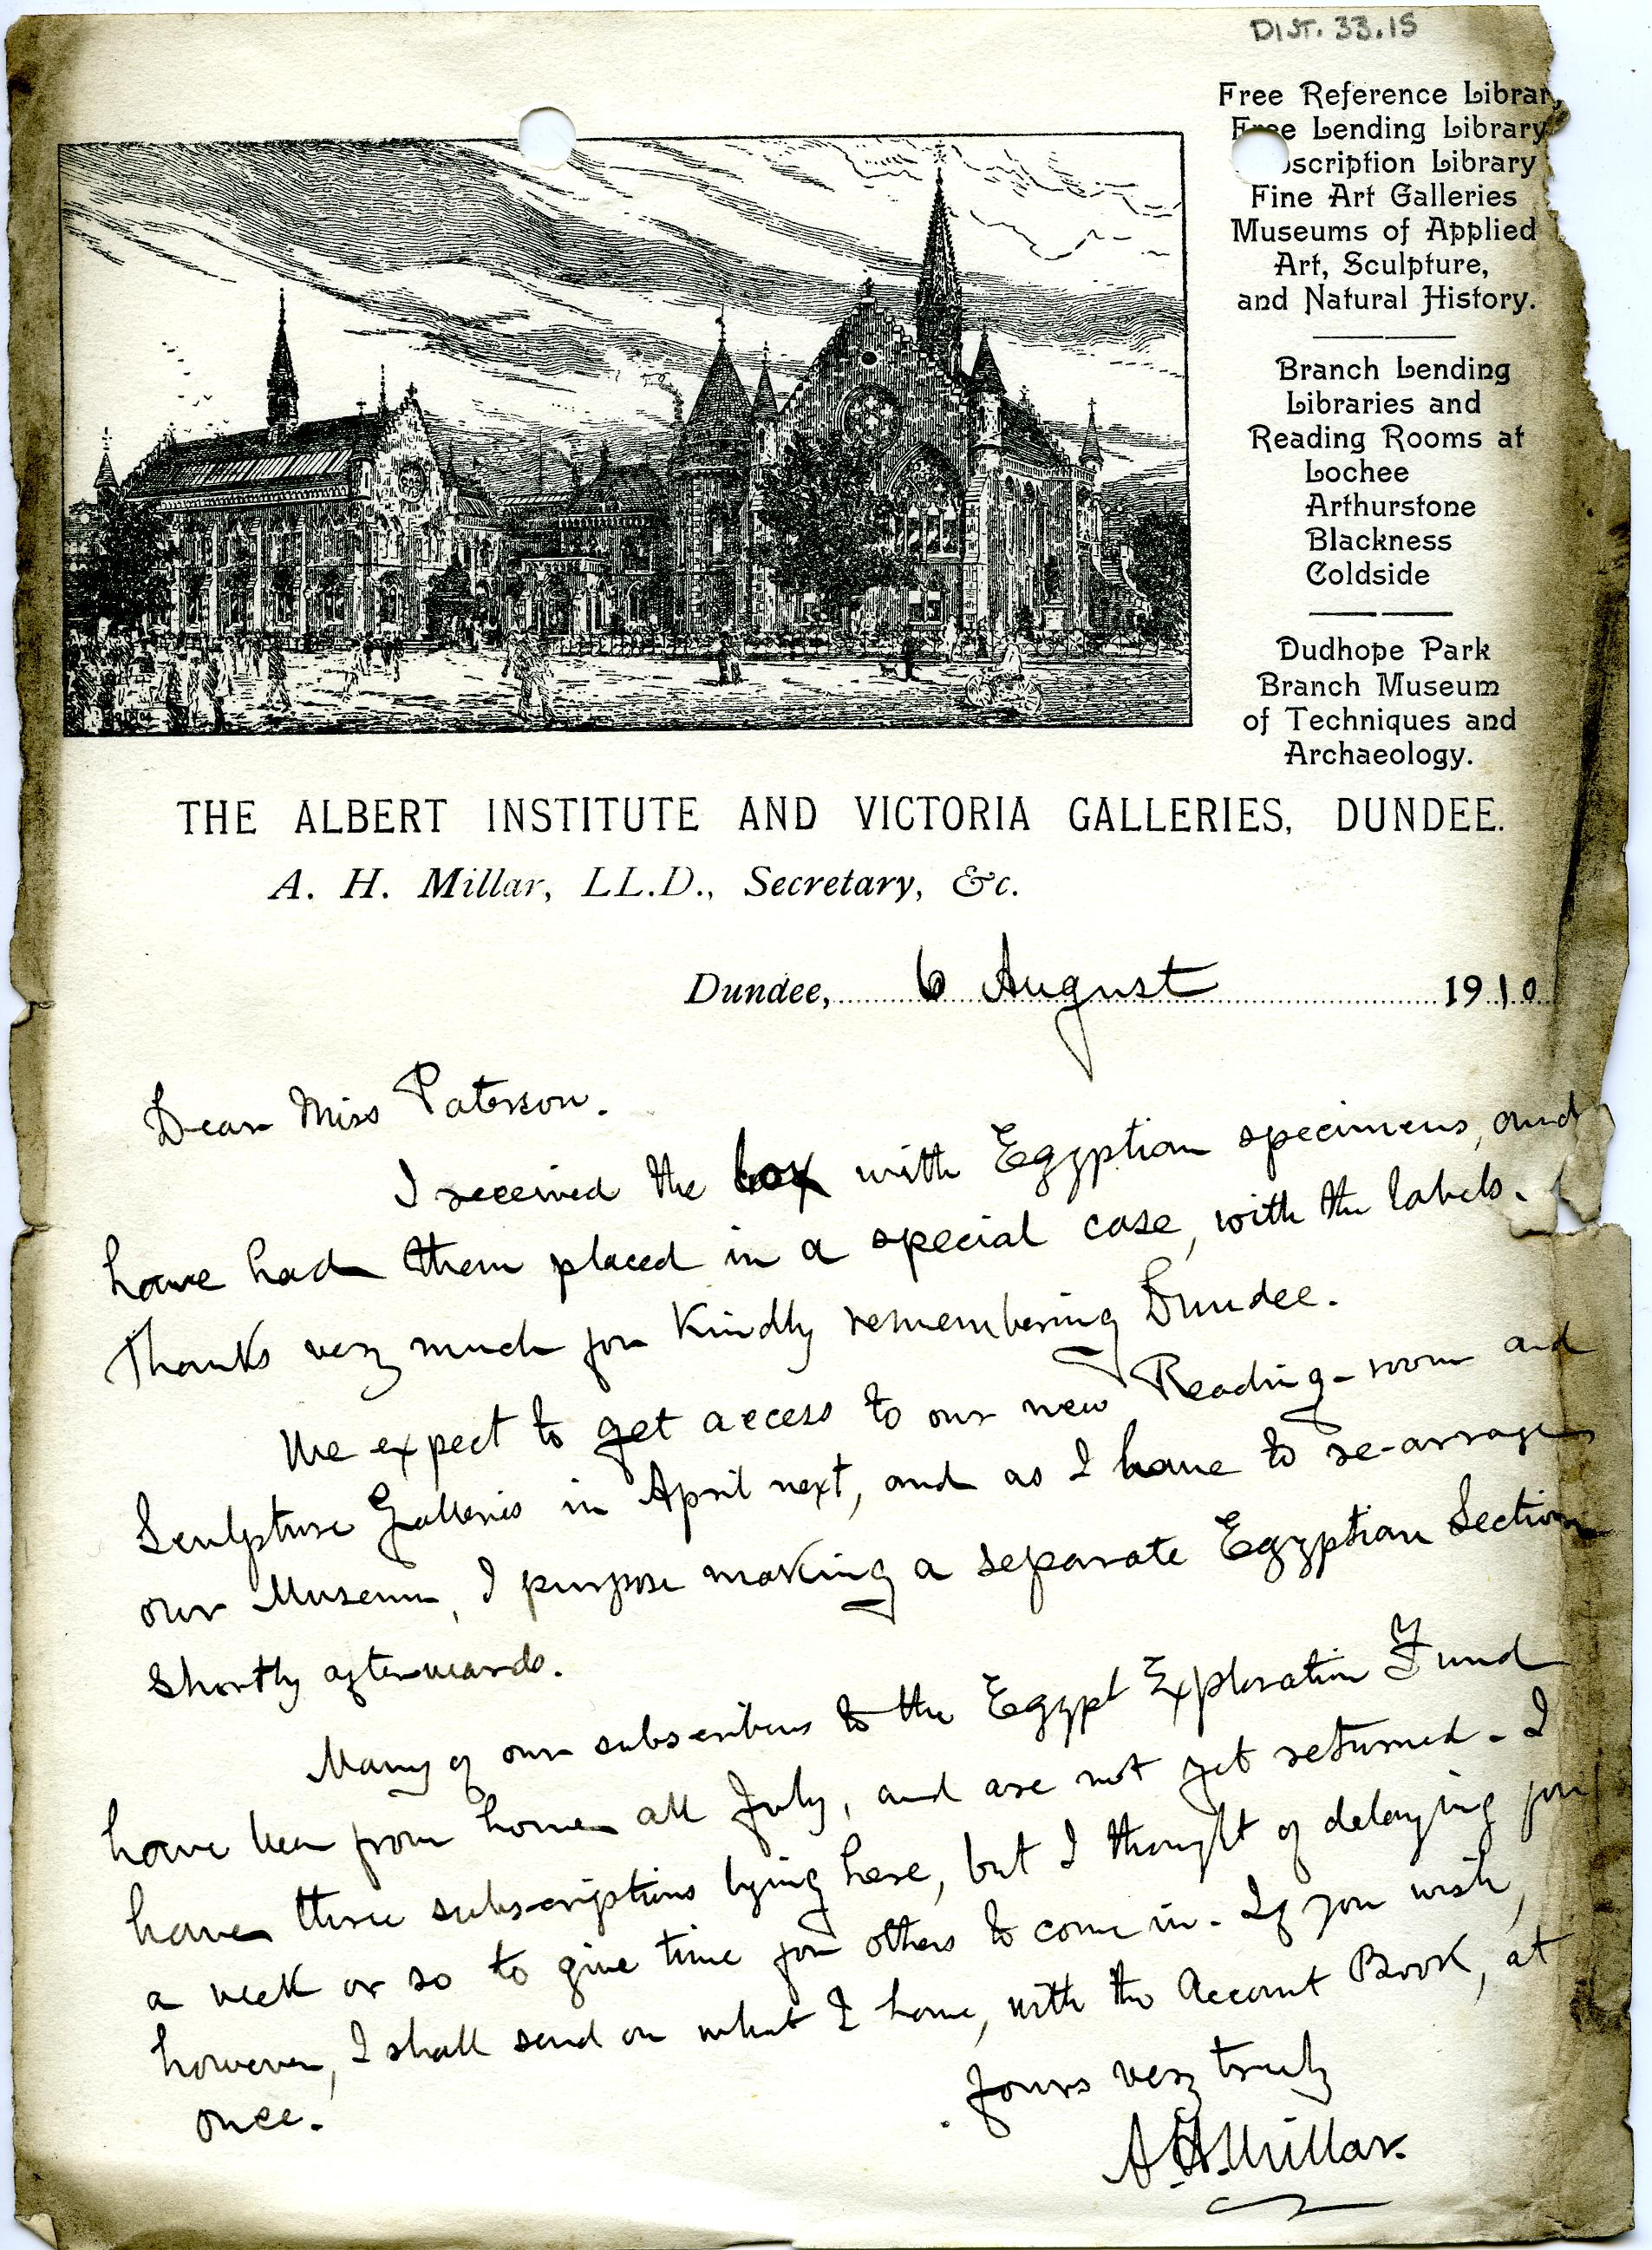 DIST. 33.15
Free Reference Librar
Free Lending Library
scription Library
Fine Art Galleries
Museums of Applied
Art, Sculpture,
and Natural History.
Branch Lending
Libraries and
Reading Rooms at
Lochee
Arthurstone
Blackness
Coldside
Dudhope Park
Branch Museum
of Techniques and
Archaeology.
THE ALBERT INSTITUTE AND VICTORIA GALLERIES, DUNDEE.
A. H. Millar, LL.D., Secretary, &c.
Dundee, 6 August 1910
Dear Miss Paterson.
I received the box with Egyptian specimens, and
have had them placed in a special case, with the labels.
Thanks very much for kindly remembering Dundee.
We expect to get access to our new Reading-room and
Sculpture Galleries in April next, and as I have to re-arrange
our Museum, I purpose making a separate Egyptian Section
shortly afterwards.
Many of our subscribers to the Egypt Exploration Fund
have been from home all July, and are not yet returned. I
have three subscriptions lying here, but I thought of delaying for
a week or so to give time for others to come in. If you wish,
however, I shall send on what I have, with the Account Book, at
once.
Yours very truly
A.H. Millar.